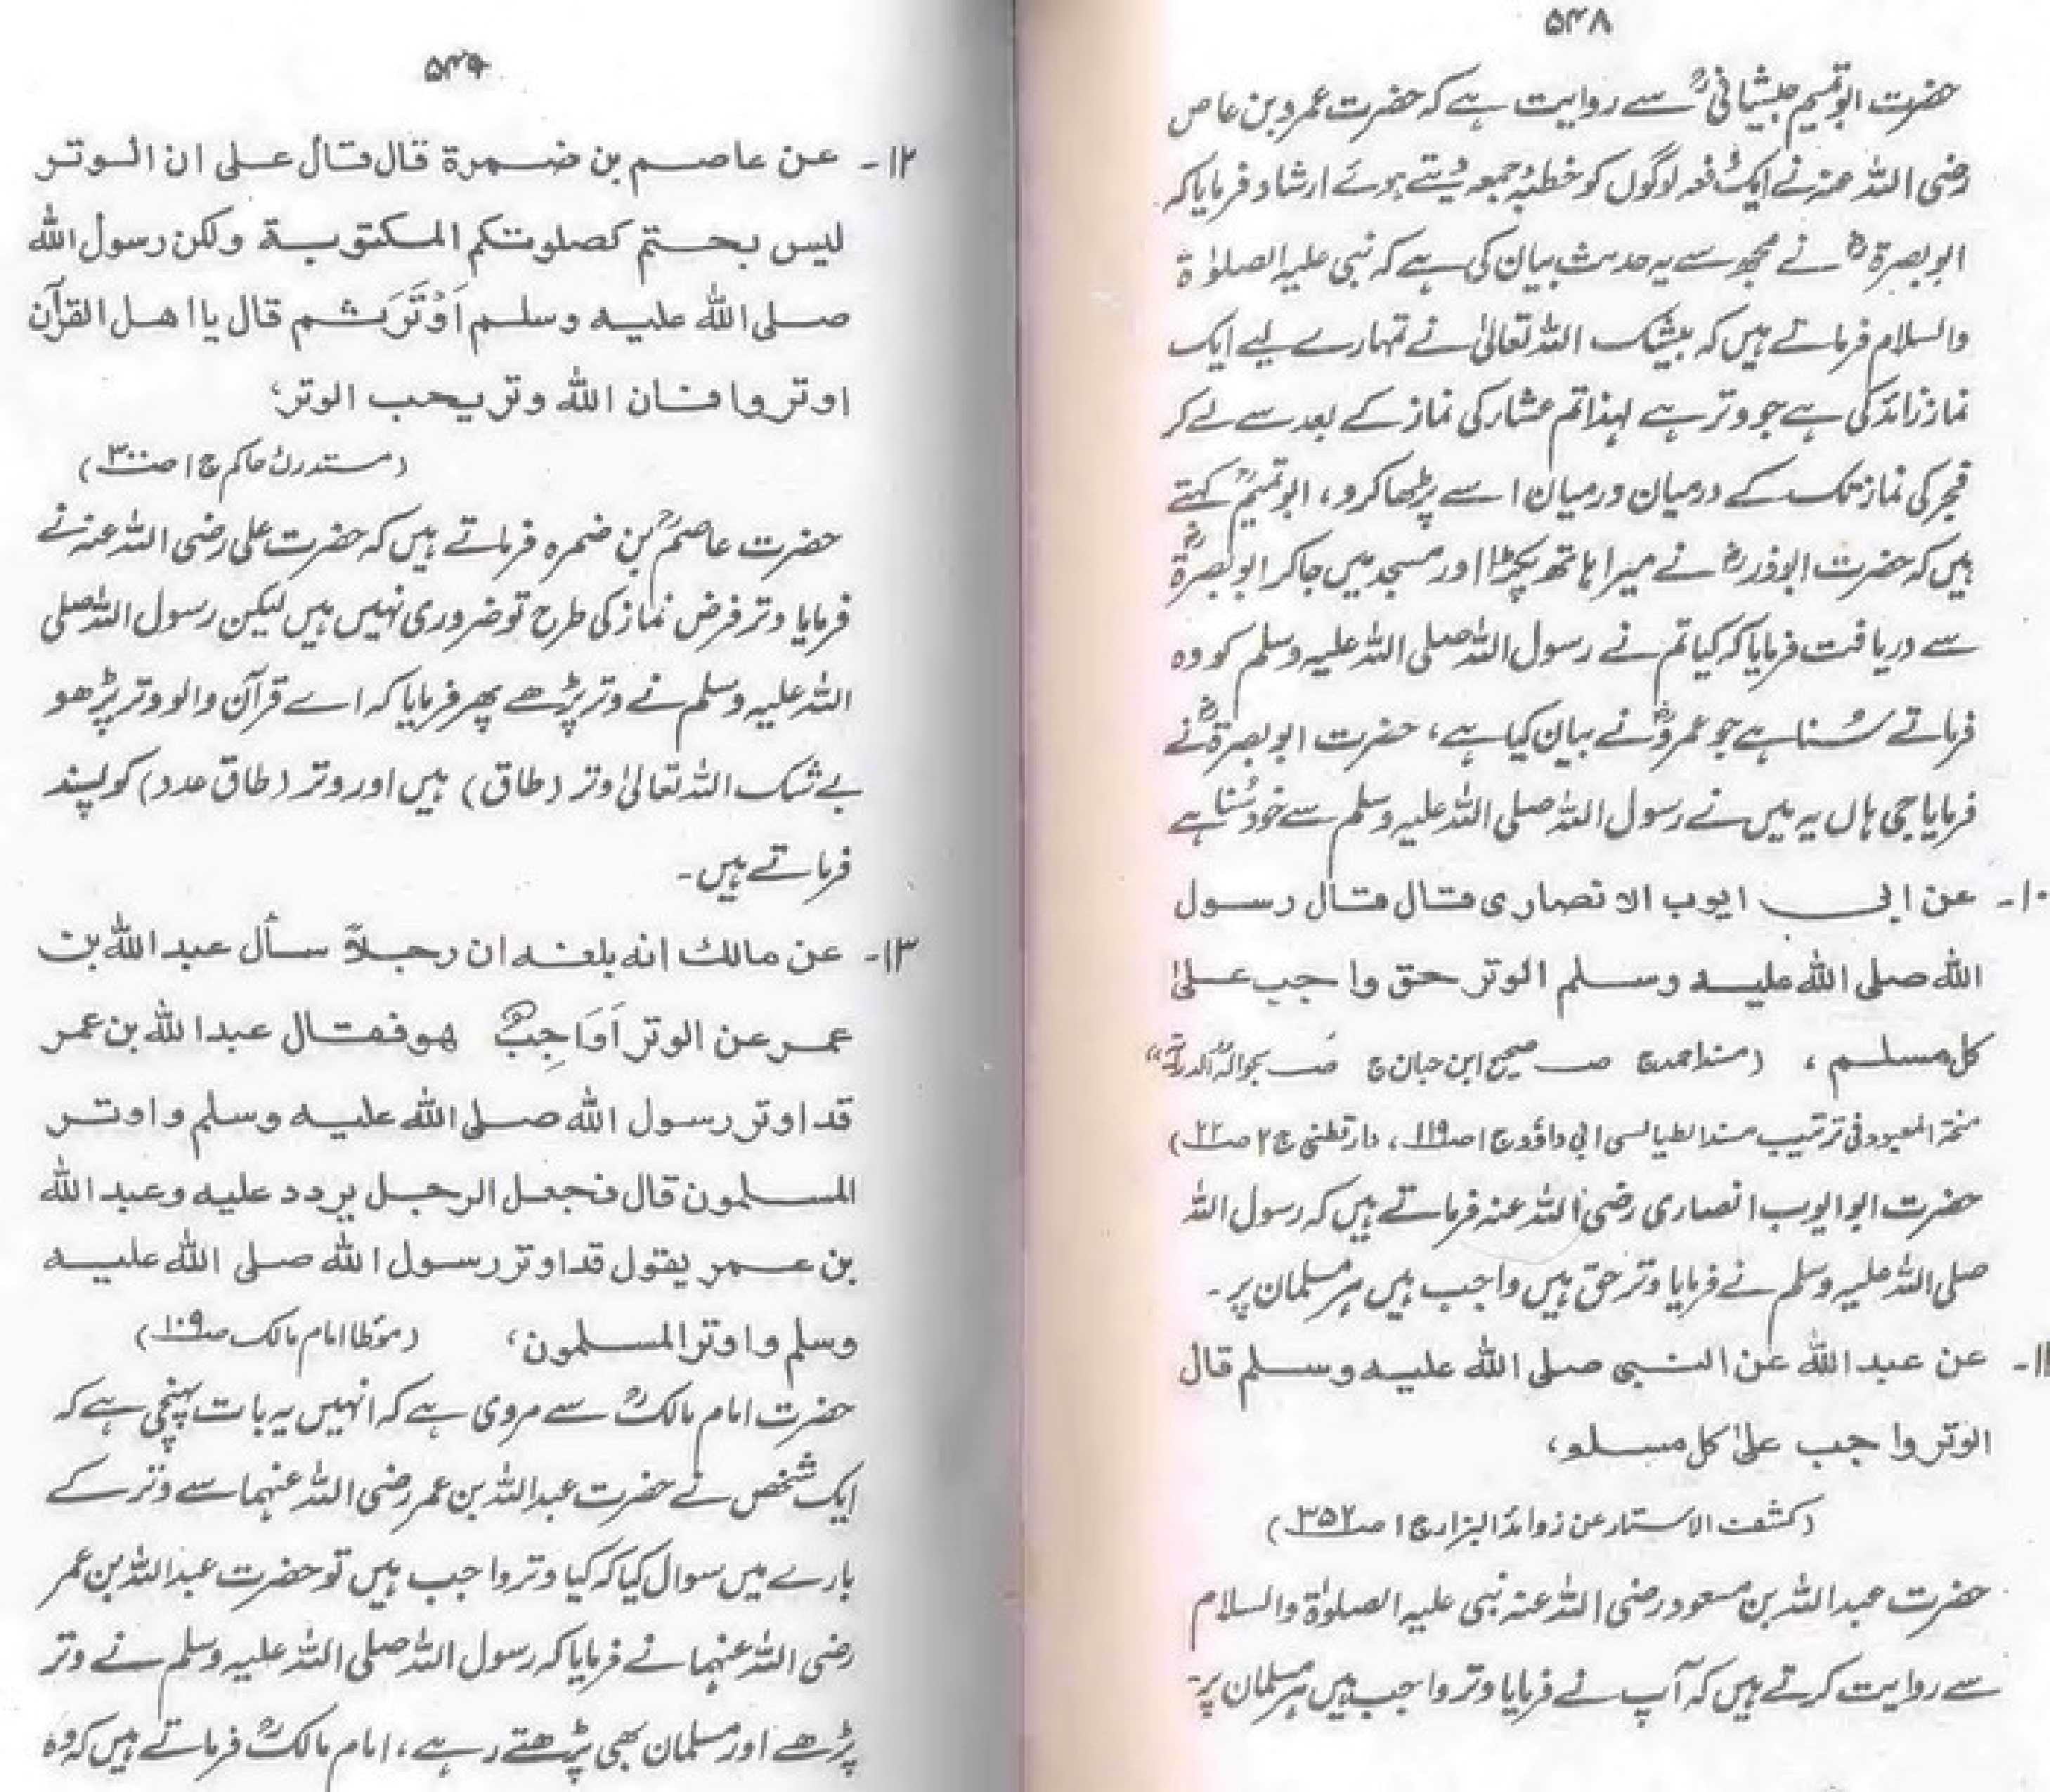 ۵۴۸
حضرت ابوتمیم جیشانیؒ سے روایت ہے کہ حضرت عمرو بن عاص
رضی اللہ عنہ نے ایک دفعہ لوگوں کو خطبۂ جمعہ دیتے ہوئے ارشاد فرمایا کہ
ابو بصرۃؓ نے مجھ سے یہ حدیث بیان کی ہے کہ نبی علیہ الصلوٰۃ
والسلام فرماتے ہیں کہ بیشک اللہ تعالیٰ نے تمہارے لیے ایک
نماز زائد کی ہے جو وتر ہے لہذا تم عشار کی نماز کے بعد سے لے کر
فجر کی نماز تک کے درمیان درمیان اسے پڑھا کرو، ابو تمیمؒ کہتے
ہیں کہ حضرت ابوذرؓ نے میرا ہاتھ پکڑا اور مسجد میں جا کر ابو بصرۃؓ
سے دریافت فرمایا کہ کیا تم نے رسول اللہ صلی اللہ علیہ وسلم کو وہ
فرماتے سُنا ہے جو عمروؓ نے بیان کیا ہے، حضرت ابو بصرۃؓ نے
فرمایا جی ہاں یہ میں نے رسول اللہ صلی اللہ علیہ وسلم سے خود سُنا ہے
۱۰۔ عن ابی ایوب الانصاری قال قال رسول
الله صلى الله عليه وسلم الوتر حق واجب علىٰ
كل مسلم، (مسند احمد ج صـ صحیح ابن حبان ج صـ بحوالہ الدرایۃ"
منحۃ المعبود فی ترتیب مسند الطیالسی ابی داؤد ج۱ ص۱۱۹، دارقطنی ج۲ ص۲۲)
حضرت ابو ایوب انصاری رضی اللہ عنہ فرماتے ہیں کہ رسول اللہ
صلی اللہ علیہ وسلم نے فرمایا وتر حق ہیں واجب ہیں ہر مسلمان پر۔
۱۱۔ عن عبد الله عن النبی صلی الله علیه وسلم قال
الوتر واجب علىٰ كل مسلم،
(کشف الاستار عن زوائد البزار ج۱ ص۳۵۲)
حضرت عبد اللہ بن مسعود رضی اللہ عنہ نبی علیہ الصلوٰۃ والسلام
سے روایت کرتے ہیں کہ آپ نے فرمایا وتر واجب ہیں ہر مسلمان پر۔
۵۴۹
۱۲۔ عن عاصم بن ضمرة قال قال على ان الوتر
ليس بحتم كصلوتكم المكتوبة ولكن رسول الله
صلى الله عليه وسلم اَوْتَرَ ثم قال يا اهل القرآن
اوتروا فان الله وتر يحب الوتر،
(مستدرک حاکم ج۱ ص۳۰۰)
حضرت عاصمؒ بن ضمرہ فرماتے ہیں کہ حضرت علی رضی اللہ عنہ نے
فرمایا وتر فرض نماز کی طرح تو ضروری نہیں ہیں لیکن رسول اللہ صلی
اللہ علیہ وسلم نے وتر پڑھے پھر فرمایا کہ اے قرآن والو وتر پڑھو
بے شک اللہ تعالیٰ وتر (طاق) ہیں اور وتر (طاق عدد) کو پسند
فرماتے ہیں۔
۱۳۔ عن مالك انه بلغه ان رجلاً سأل عبد الله بن
عمر عن الوتر اَوَاجِبٌ هو فقال عبد الله بن عمر
قد اوتر رسول الله صلى الله عليه وسلم واوتر
المسلمون قال فجعل الرجل يردد عليه وعبد الله
بن عمر يقول قد اوتر رسول الله صلى الله عليه
وسلم واوتر المسلمون، (مؤطا امام مالک ص۱۰۹)
حضرت امام مالکؒ سے مروی ہے کہ انہیں یہ بات پہنچی ہے کہ
ایک شخص نے حضرت عبد اللہ بن عمر رضی اللہ عنہما سے وتر کے
بارے میں سوال کیا کہ کیا وتر واجب ہیں تو حضرت عبد اللہ بن عمر
رضی اللہ عنہما نے فرمایا کہ رسول اللہ صلی اللہ علیہ وسلم نے وتر
پڑھے اور مسلمان بھی پڑھتے رہے، امام مالکؒ فرماتے ہیں کہ وہ